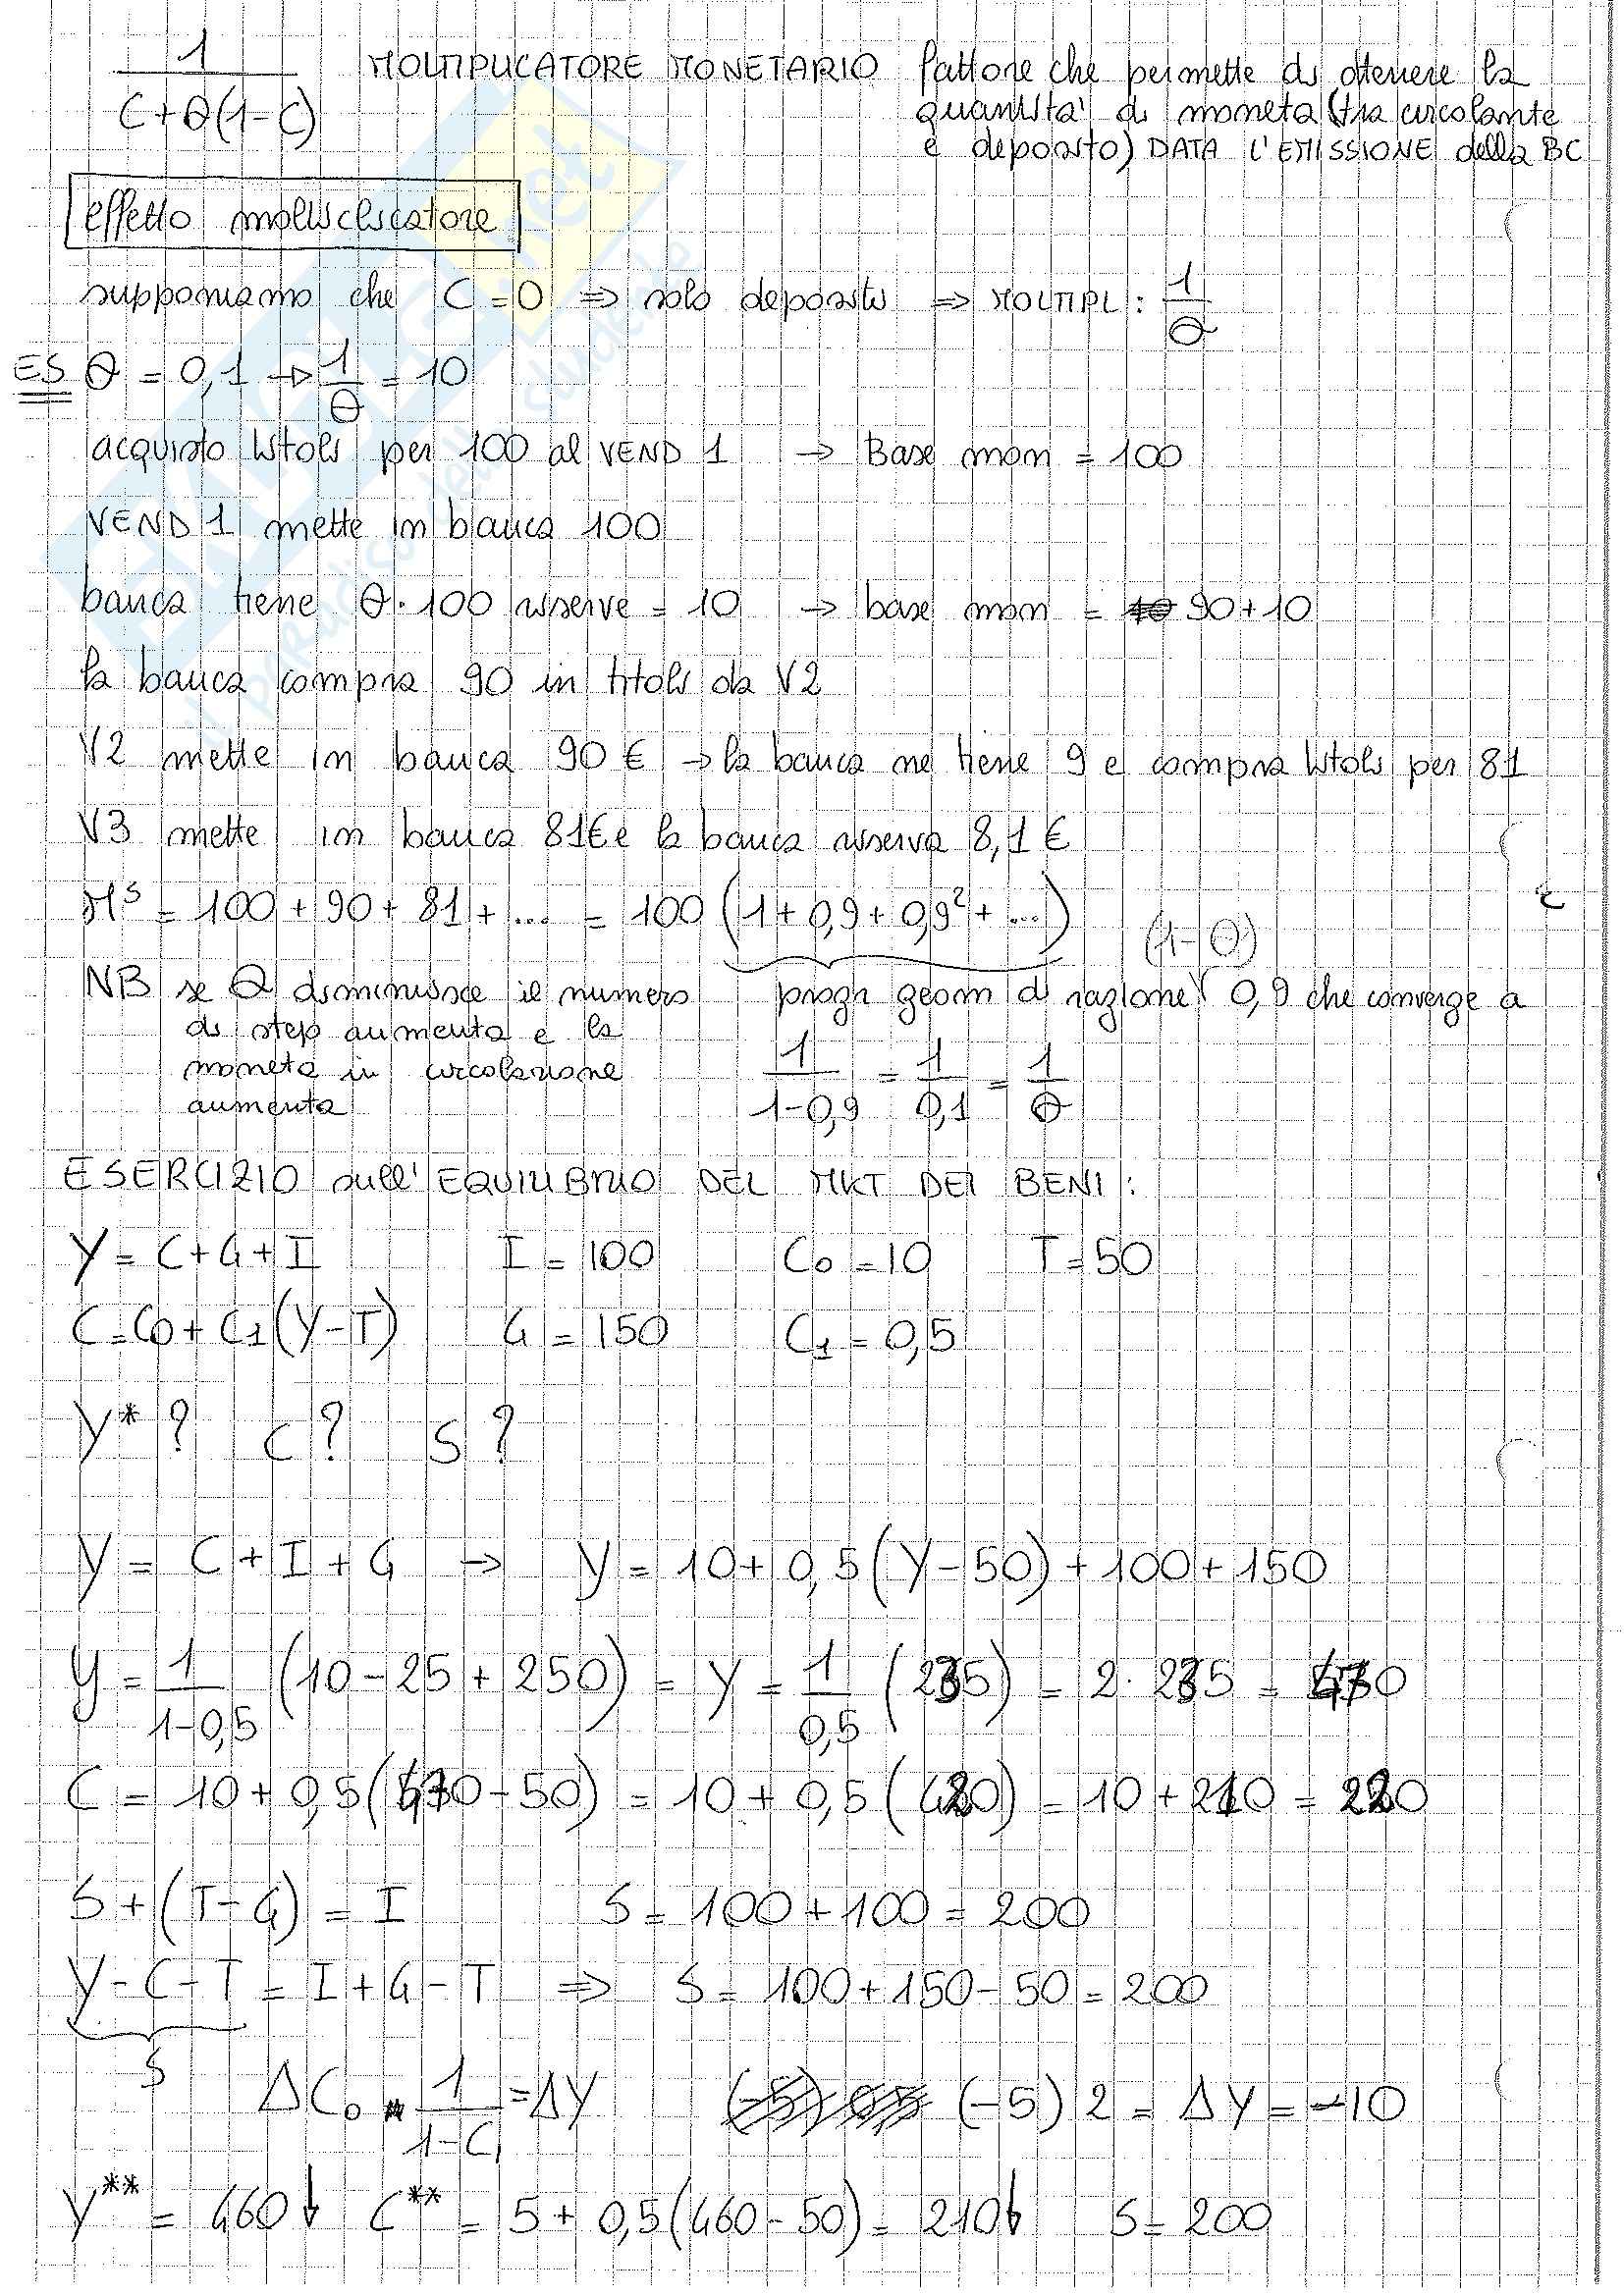 1 / (C+θ(1-C)) MOLTIPLICATORE MONETARIO fattore che permette di ottenere la
quantità di moneta (tra circolante
e deposito) DATA L'EMISSIONE della BC
effetto moltiplicatore
supponiamo che C=0 ⇒ solo depositi ⇒ MOLTIPL: 1/θ
ES θ = 0,1 → 1/θ = 10
acquisto titoli per 100 al VEND 1 → Base mon = 100
VEND 1 mette in banca 100
banca tiene θ·100 riserve = 10 → base mon = 90+10
la banca compra 90 in titoli da V2
V2 mette in banca 90 € → la banca ne tiene 9 e compra titoli per 81
V3 mette in banca 81€ e la banca riserva 8,1 €
M^S = 100 + 90 + 81 + ... = 100 (1+0,9+0,9²+...)
(1-θ)
NB se θ diminuisce il numero
di step aumenta e la
moneta in circolazione
aumenta
progr geom di ragione 0,9 che converge a
1/(1-0,9) = 1/0,1 = 1/θ
ESERCIZIO sull'EQUILIBRIO DEL MKT DEI BENI:
Y = C+G+I I = 100 C₀ = 10 T = 50
C = C₀ + C₁(Y-T) G = 150 C₁ = 0,5
Y*? C? S?
Y = C + I + G → Y = 10 + 0,5(Y-50) + 100 + 150
Y = 1/(1-0,5) (10-25+250) = Y = 1/0,5 (235) = 2·235 = 470
C = 10 + 0,5(470-50) = 10 + 0,5(420) = 10 + 210 = 220
S + (T-G) = I S = 100+100 = 200
Y-C-T = I+G-T ⇒ S = 100+150-50 = 200
S
ΔC₀ * 1/(1-C₁) = ΔY (-5) 2 = ΔY = -10
Y** = 460↓ C** = 5 + 0,5(460-50) = 210↓ S = 200